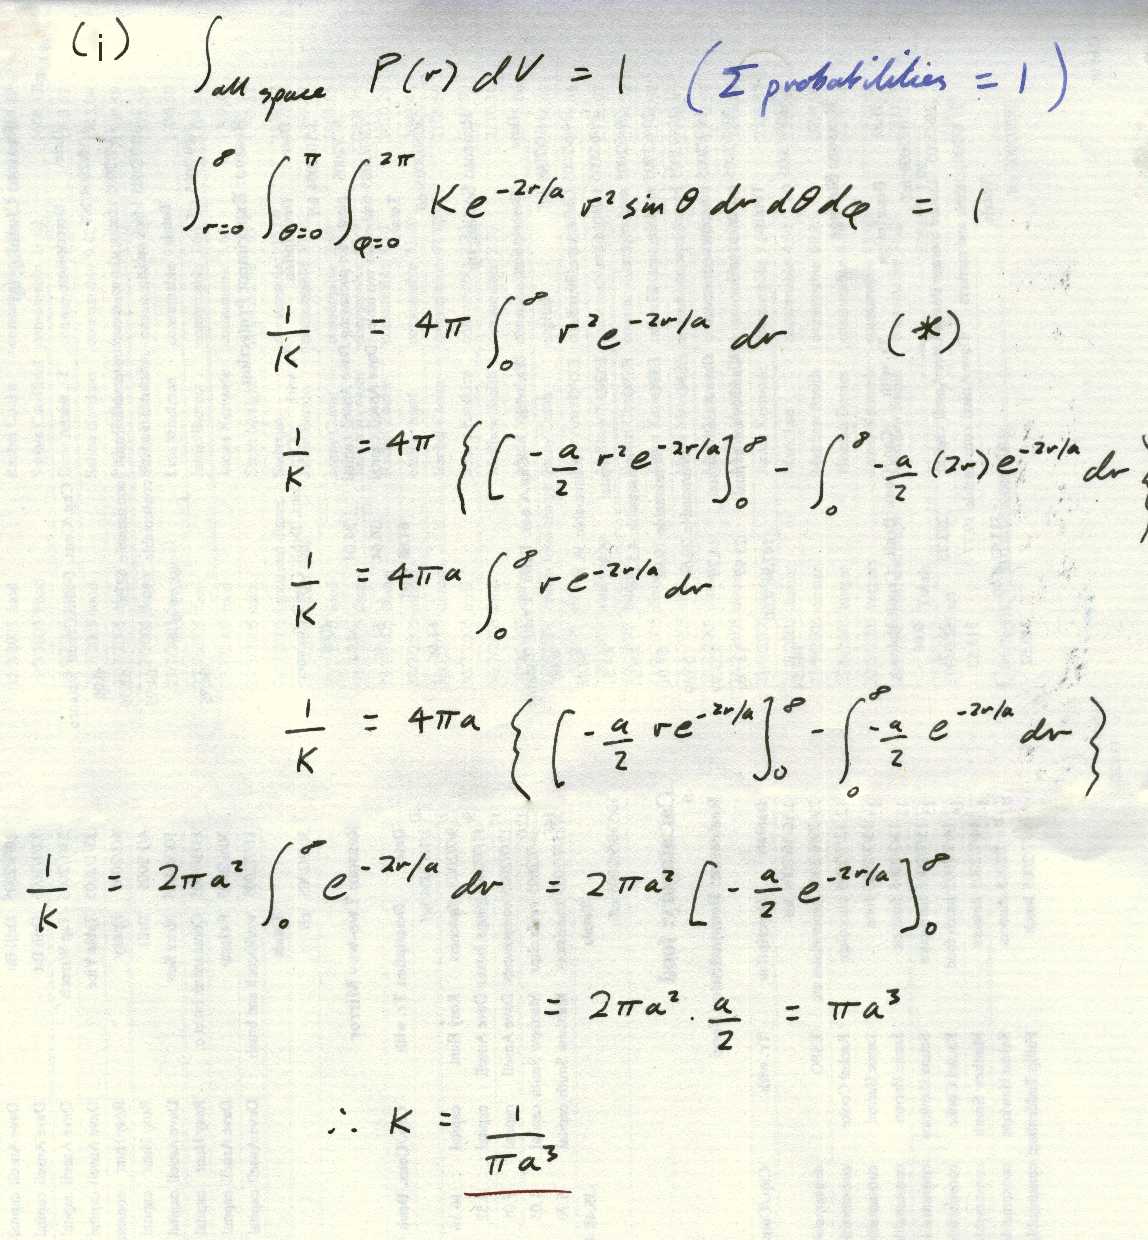 (i) ∫_{all space} P(r) dV = 1 (Σ probabilities = 1)
∫_{r=0}^{∞} ∫_{θ=0}^{π} ∫_{φ=0}^{2π} K e^{-2r/a} r² sin θ dr dθ dφ = 1
1/K = 4π ∫_0^∞ r² e^{-2r/a} dr (*)
1/K = 4π { [ -a/2 r² e^{-2r/a} ]_0^∞ - ∫_0^∞ -a/2 (2r) e^{-2r/a} dr }
1/K = 4πa ∫_0^∞ r e^{-2r/a} dr
1/K = 4πa { [ -a/2 r e^{-2r/a} ]_0^∞ - ∫_0^∞ -a/2 e^{-2r/a} dr }
1/K = 2πa² ∫_0^∞ e^{-2r/a} dr = 2πa² [ -a/2 e^{-2r/a} ]_0^∞
= 2πa² . a/2 = πa³
∴ K = 1/πa³